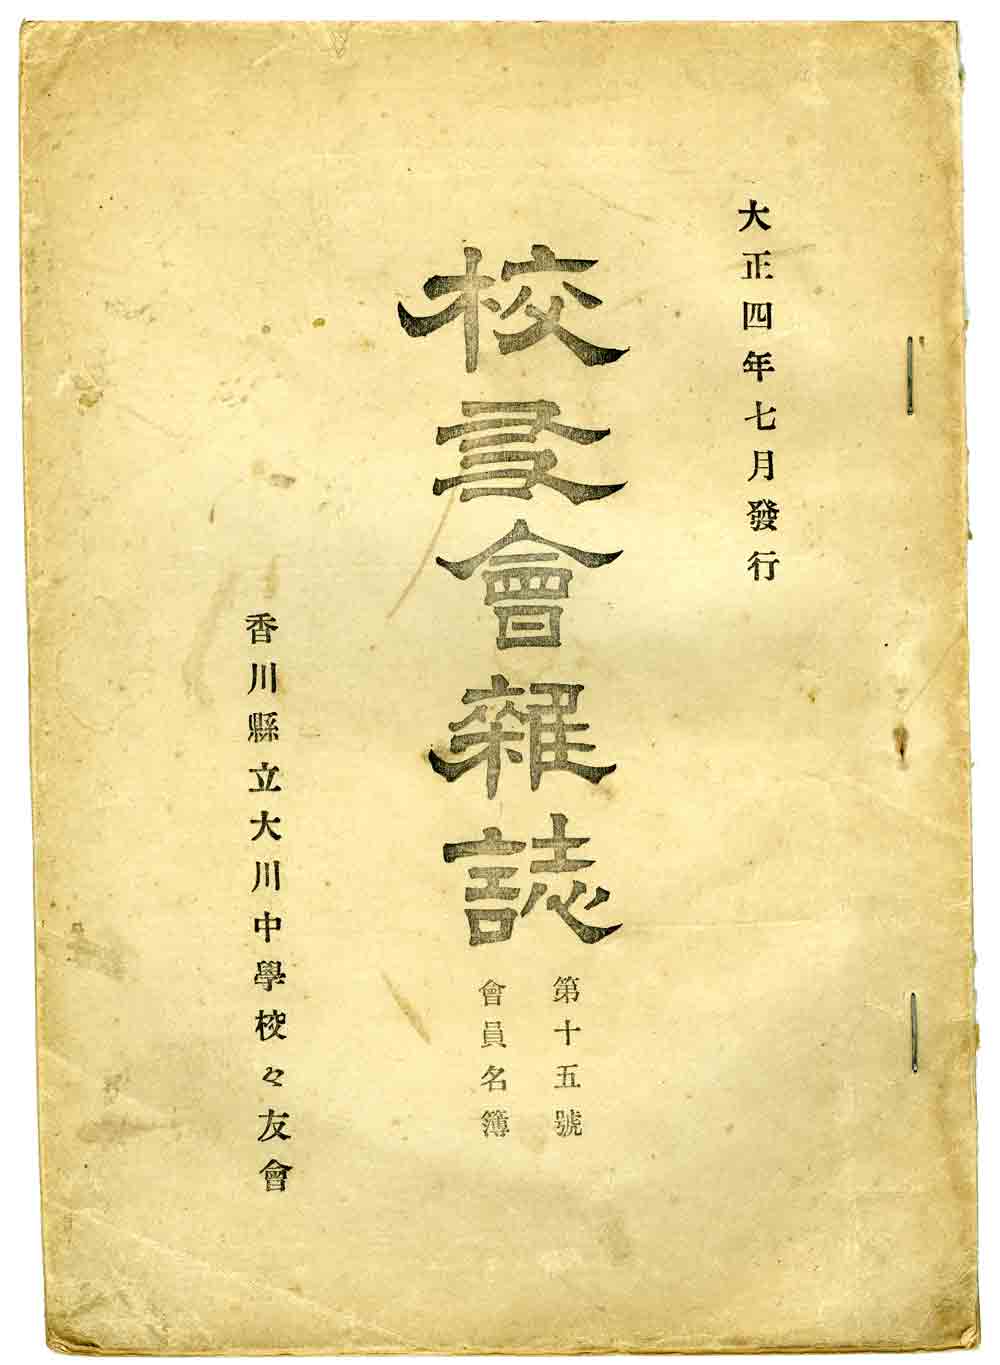 大正四年七月發行
校友會雜誌
第十五號
會員名簿
香川縣立大川中學校々友會